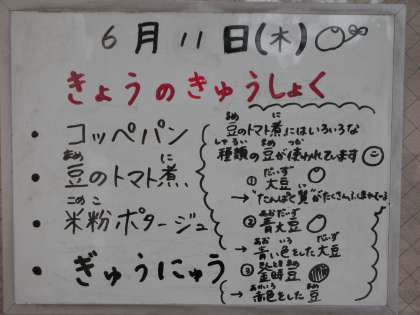 6月11日(木)
きょうのきゅうしょく
• コッペパン
• 豆のトマト煮
• 米粉ポタージュ
• ぎゅうにゅう
豆のトマト煮にはいろいろな
種類の豆が使われています
① 大豆
→ "たんぱく質"がたくさんふくまれている
② 青大豆
→ 青い色をした大豆
③ 金時豆
→ 赤色をした豆